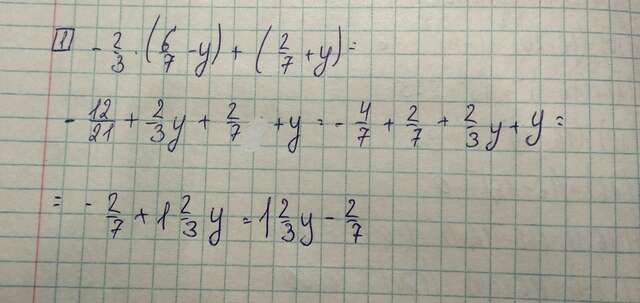 1 - 2/3 · (6/7 - y) + (2/7 + y) =
- 12/21 + 2/3 y + 2/7 + y = - 4/7 + 2/7 + 2/3 y + y =
= - 2/7 + 1 2/3 y = 1 2/3 y - 2/7